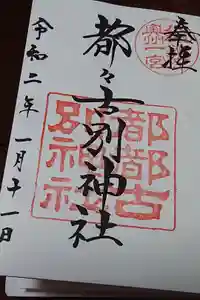 奉拝
奥州
一宮
都々古別神社
都都古
別神社
令和二年一月十一日